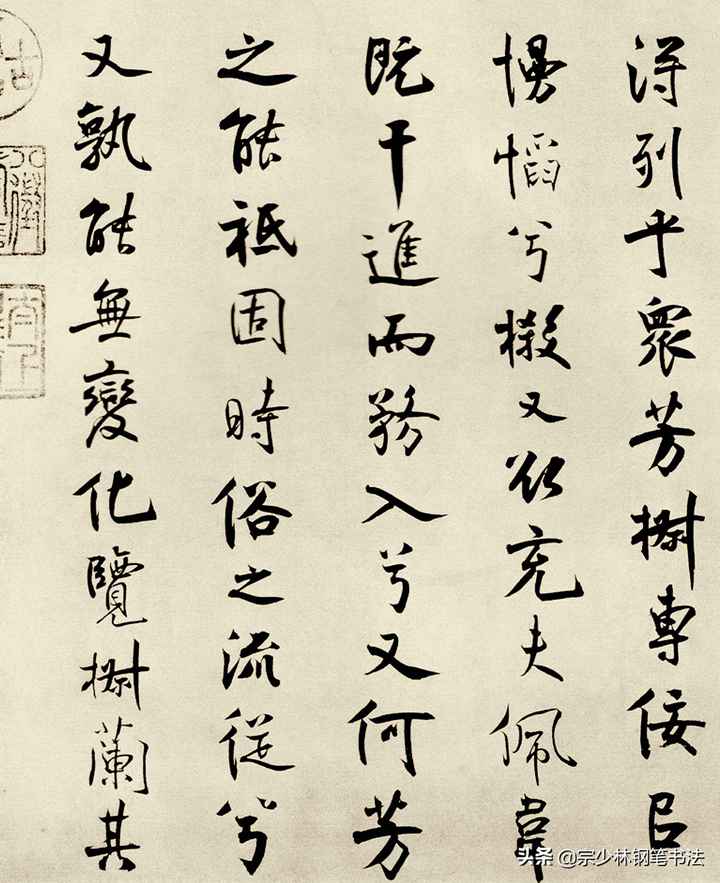 得列乎眾芳椒專佞㠯
慢慆兮樧又欲充夫佩韋
既干進而務入兮又何芳
之能祗固時俗之流從兮
又孰能無變化覽椒蘭其
头条 @宗少林钢笔书法